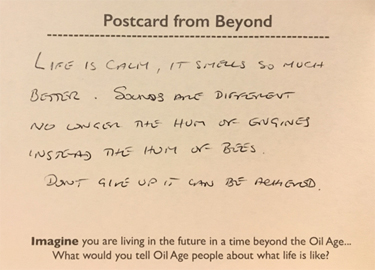 Postcard from Beyond
LIFE IS CALM, IT SMELLS SO MUCH
BETTER. SOUNDS ARE DIFFERENT
NO LONGER THE HUM OF ENGINES
INSTEAD THE HUM OF BEES.
DONT GIVE UP IT CAN BE ACHIEVED.
Imagine you are living in the future in a time beyond the Oil Age...
What would you tell Oil Age people about what life is like?